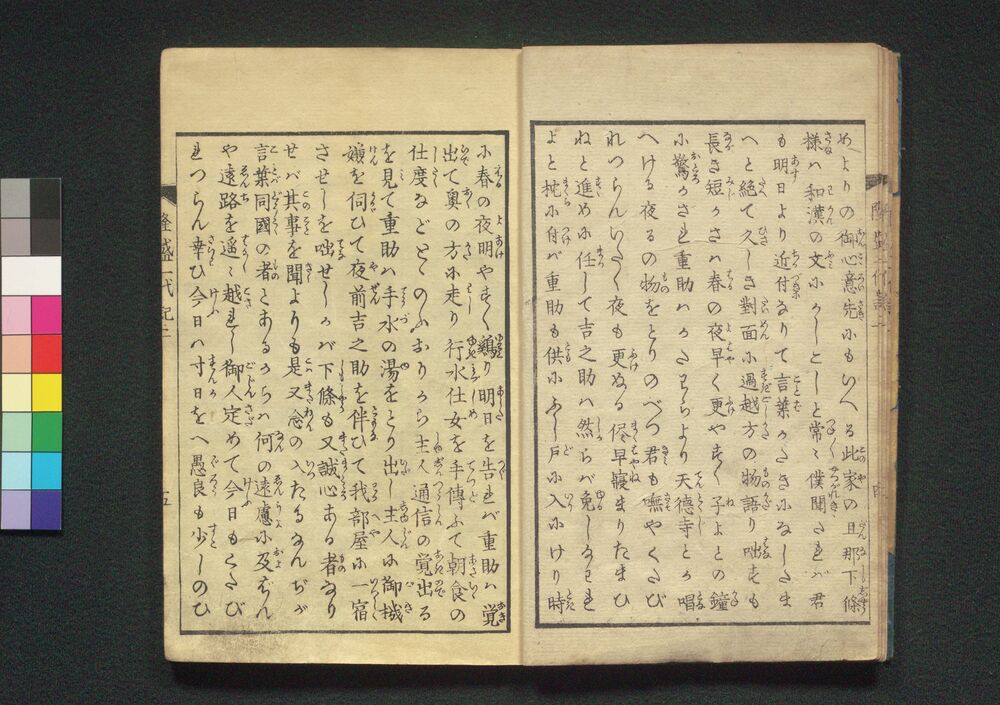 めよりの御心意先にもいへる此家の旦那下條
様ハ和漢の文にかしことしと常々僕聞たれバ君
も明日より近付なりて言葉がたきになしたま
へと絶て久しき對面に過越方の物語り咄すも
長き短かさハ春の夜早く更やすく子よとの鐘
に驚かされ重助ハかたハらより天徳寺とか唱
へける夜るの物をとりのべつ君も嘸やくたび
れつらんいたく夜も更ぬる侭早寝まりたまひ
ねと進めに任して吉之助ハ然らバ免しなされ
よと枕に付バ重助も供にふし戸に入にけり時
に春の夜明やすく鶏り明日を告れバ重助ハ覚
出て奥の方に走り行水仕女を手傳ふて朝食の
仕度などとゝのふおりから主人通信の覚出る
を見て重助ハ手水の湯をとり出し主人に御機
嫌を伺ひて夜前吉之助を伴ひて我部屋に一宿
させしを咄せしかバ下條も又誠心ある者なり
せバ其事を聞よりも是又念の入たるなんぢが
言葉同國の者とあるからハ何の遠慮に及ばん
や遠路を遥々越れし御人定めて今日もくたび
れつらん幸ひ今日ハ寸日をへ愚良も少しのひ
隆盛一代記二
五